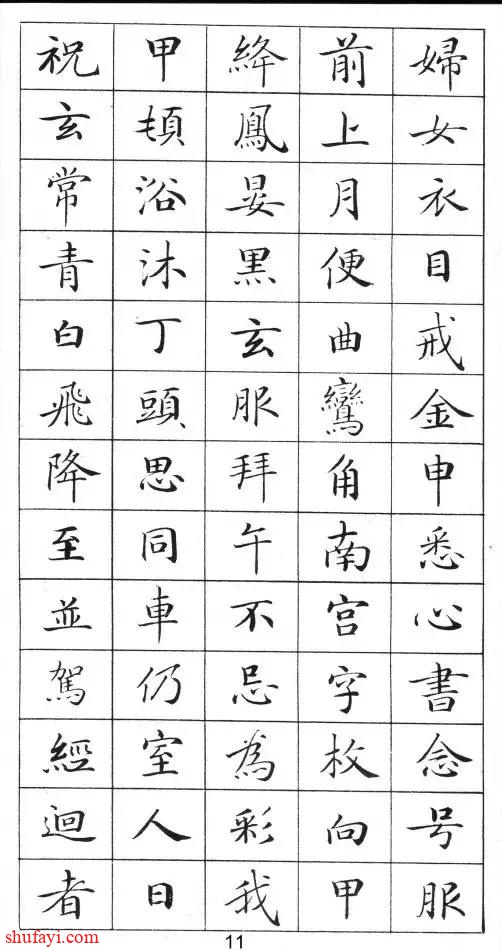 婦女衣目戒金申悉心書念号服
前上月便曲鸞角南宫字枚向甲
絳鳳晏黑玄服拜午不忌為彩我
甲頓浴沐丁頭思同車仍室人日
祝玄常青白飛降至並駕經迴者
shufayi.com
11